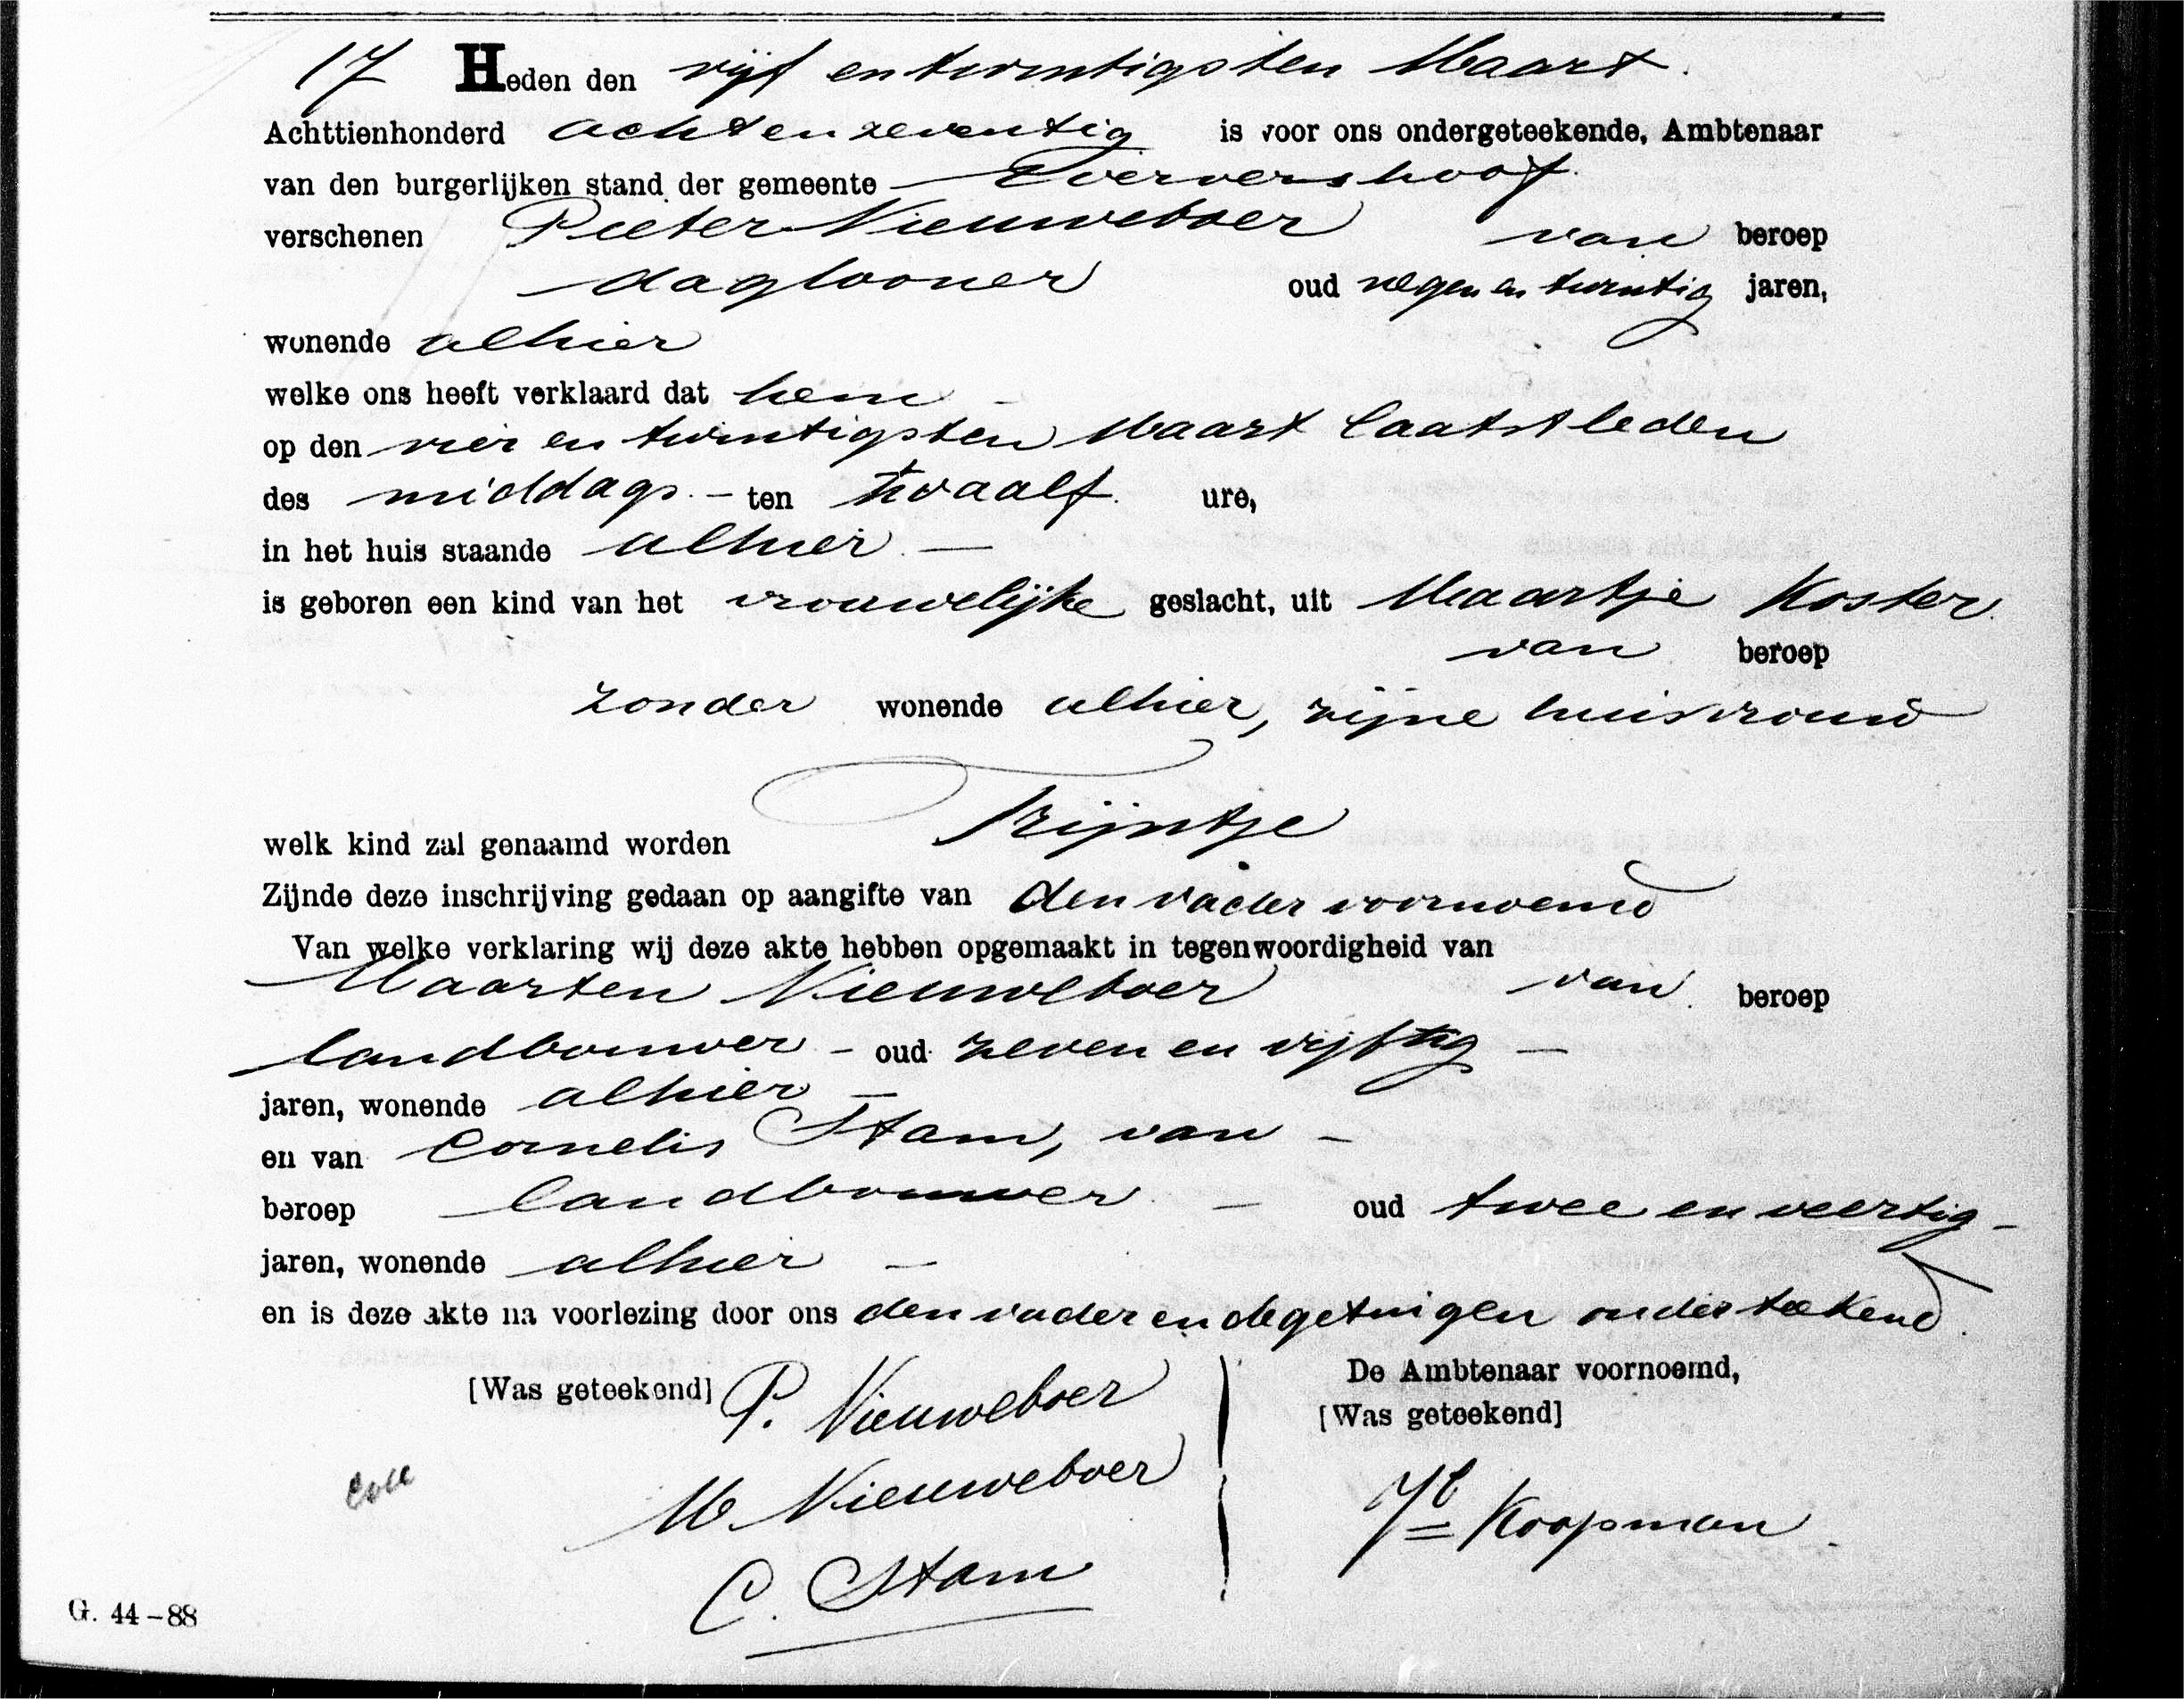 17 Heden den vijf en twintigsten Maart.
Achttienhonderd achtenzeventig is voor ons ondergeteekende, Ambtenaar
van den burgerlijken stand der gemeente Wervershoof.
verschenen Pieter Nieuweboer van beroep
daglooner oud negen en twintig jaren,
wonende alhier
welke ons heeft verklaard dat hem -
op den vier en twintigsten Maart laatstleden
des middags. - ten twaalf. ure,
in het huis staande alhier. -
is geboren een kind van het vrouwelijke geslacht, uit Maartje Koster.
van beroep
zonder wonende alhier, zijne huisvrouw
welk kind zal genaamd worden Trijntje
Zijnde deze inschrijving gedaan op aangifte van den vader voornoemd
Van welke verklaring wij deze akte hebben opgemaakt in tegenwoordigheid van
Maarten Nieuweboer van beroep
landbouwer - oud zeven en vijftig -
jaren, wonende alhier -
en van Cornelis Stam, van -
beroep landbouwer. - oud twee en veertig -
jaren, wonende alhier -
en is deze akte na voorlezing door ons den vader en de getuigen onderteekend.
[Was geteekend] P. Nieuweboer
M. Nieuweboer
C. Stam
De Ambtenaar voornoemd,
[Was geteekend]
Koopman.
G. 44-88